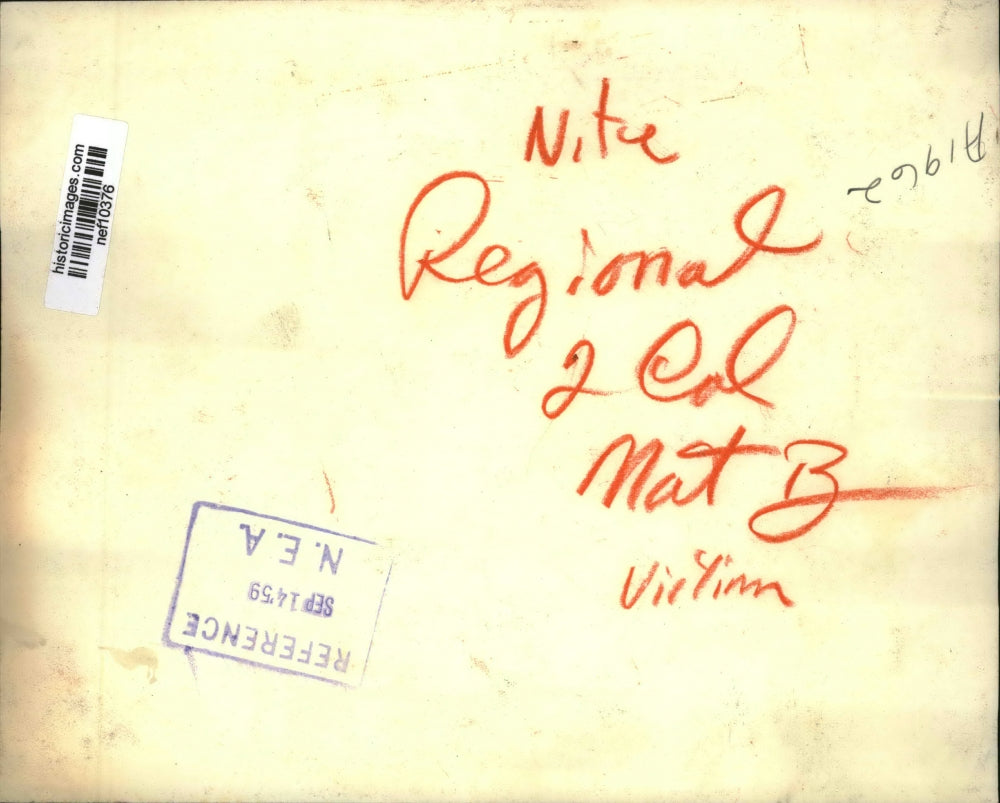 Nite
Regional
2 Col
Nat B
Victim
historicimages.com
nef10376
REFERENCE
SEP 14'59
N.E.A.